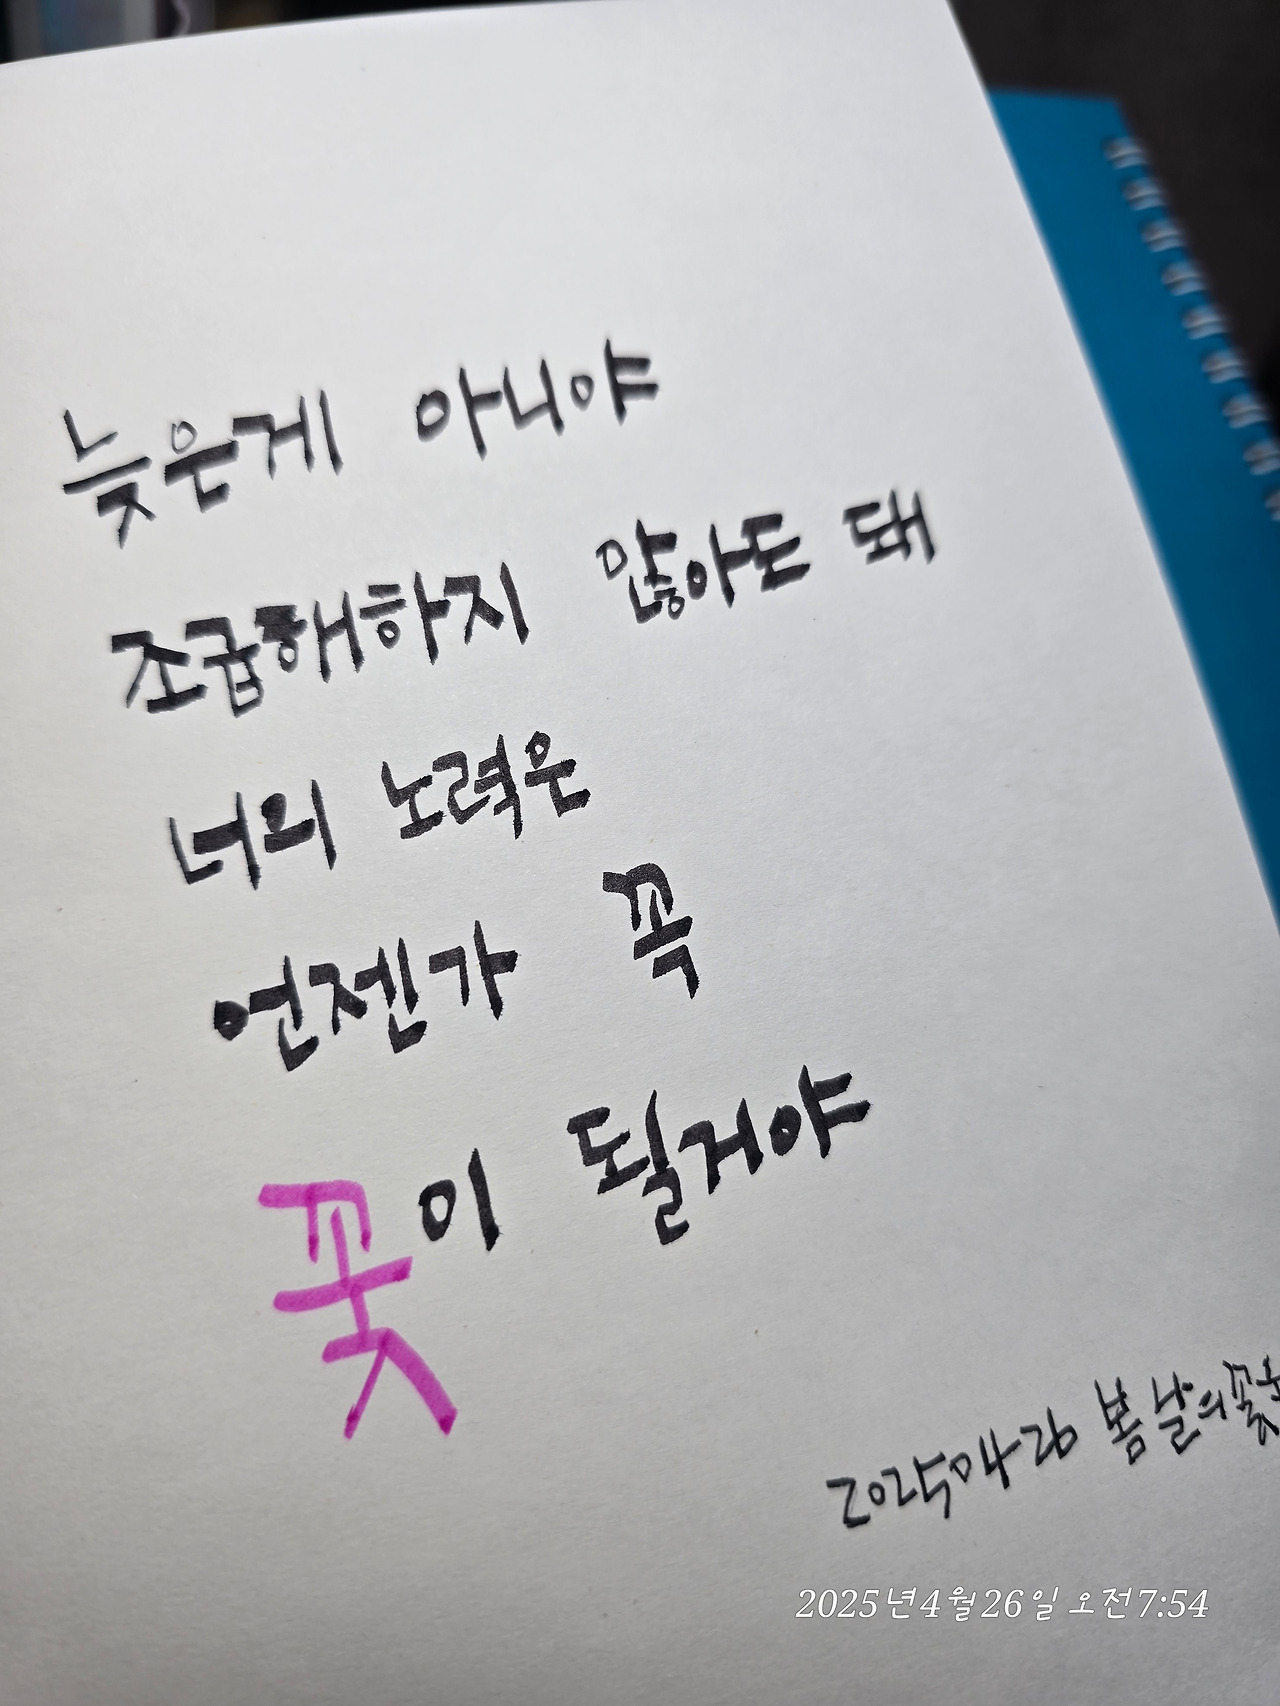 늦은게 아니야
조급해하지 않아도 돼
너의 노력은
언젠가 꼭
꽃이 될거야
20250426 봄날의
2025년4월26일 오전7:54